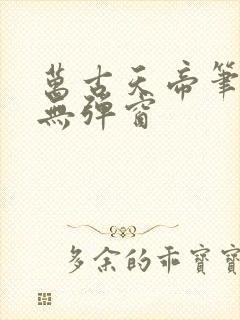 萬古天帝筆
無彈窗
多余的乖寶寶